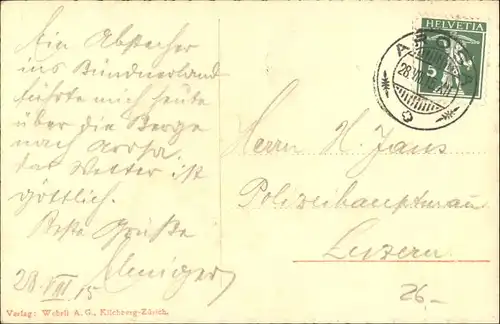 Ein Abstecher
ins Bündnerland
führte mich heute
über die Berge
nach Arosa.
das Wetter ist
göttlich.
Beste Grüße
28 VIII 15
Verlag: Wehrli A. G., Kilchberg-Zürich.
HELVETIA
5
AROSA
28.VIII
Herrn H. Jans
Polizeihauptmann
Luzern
26.-